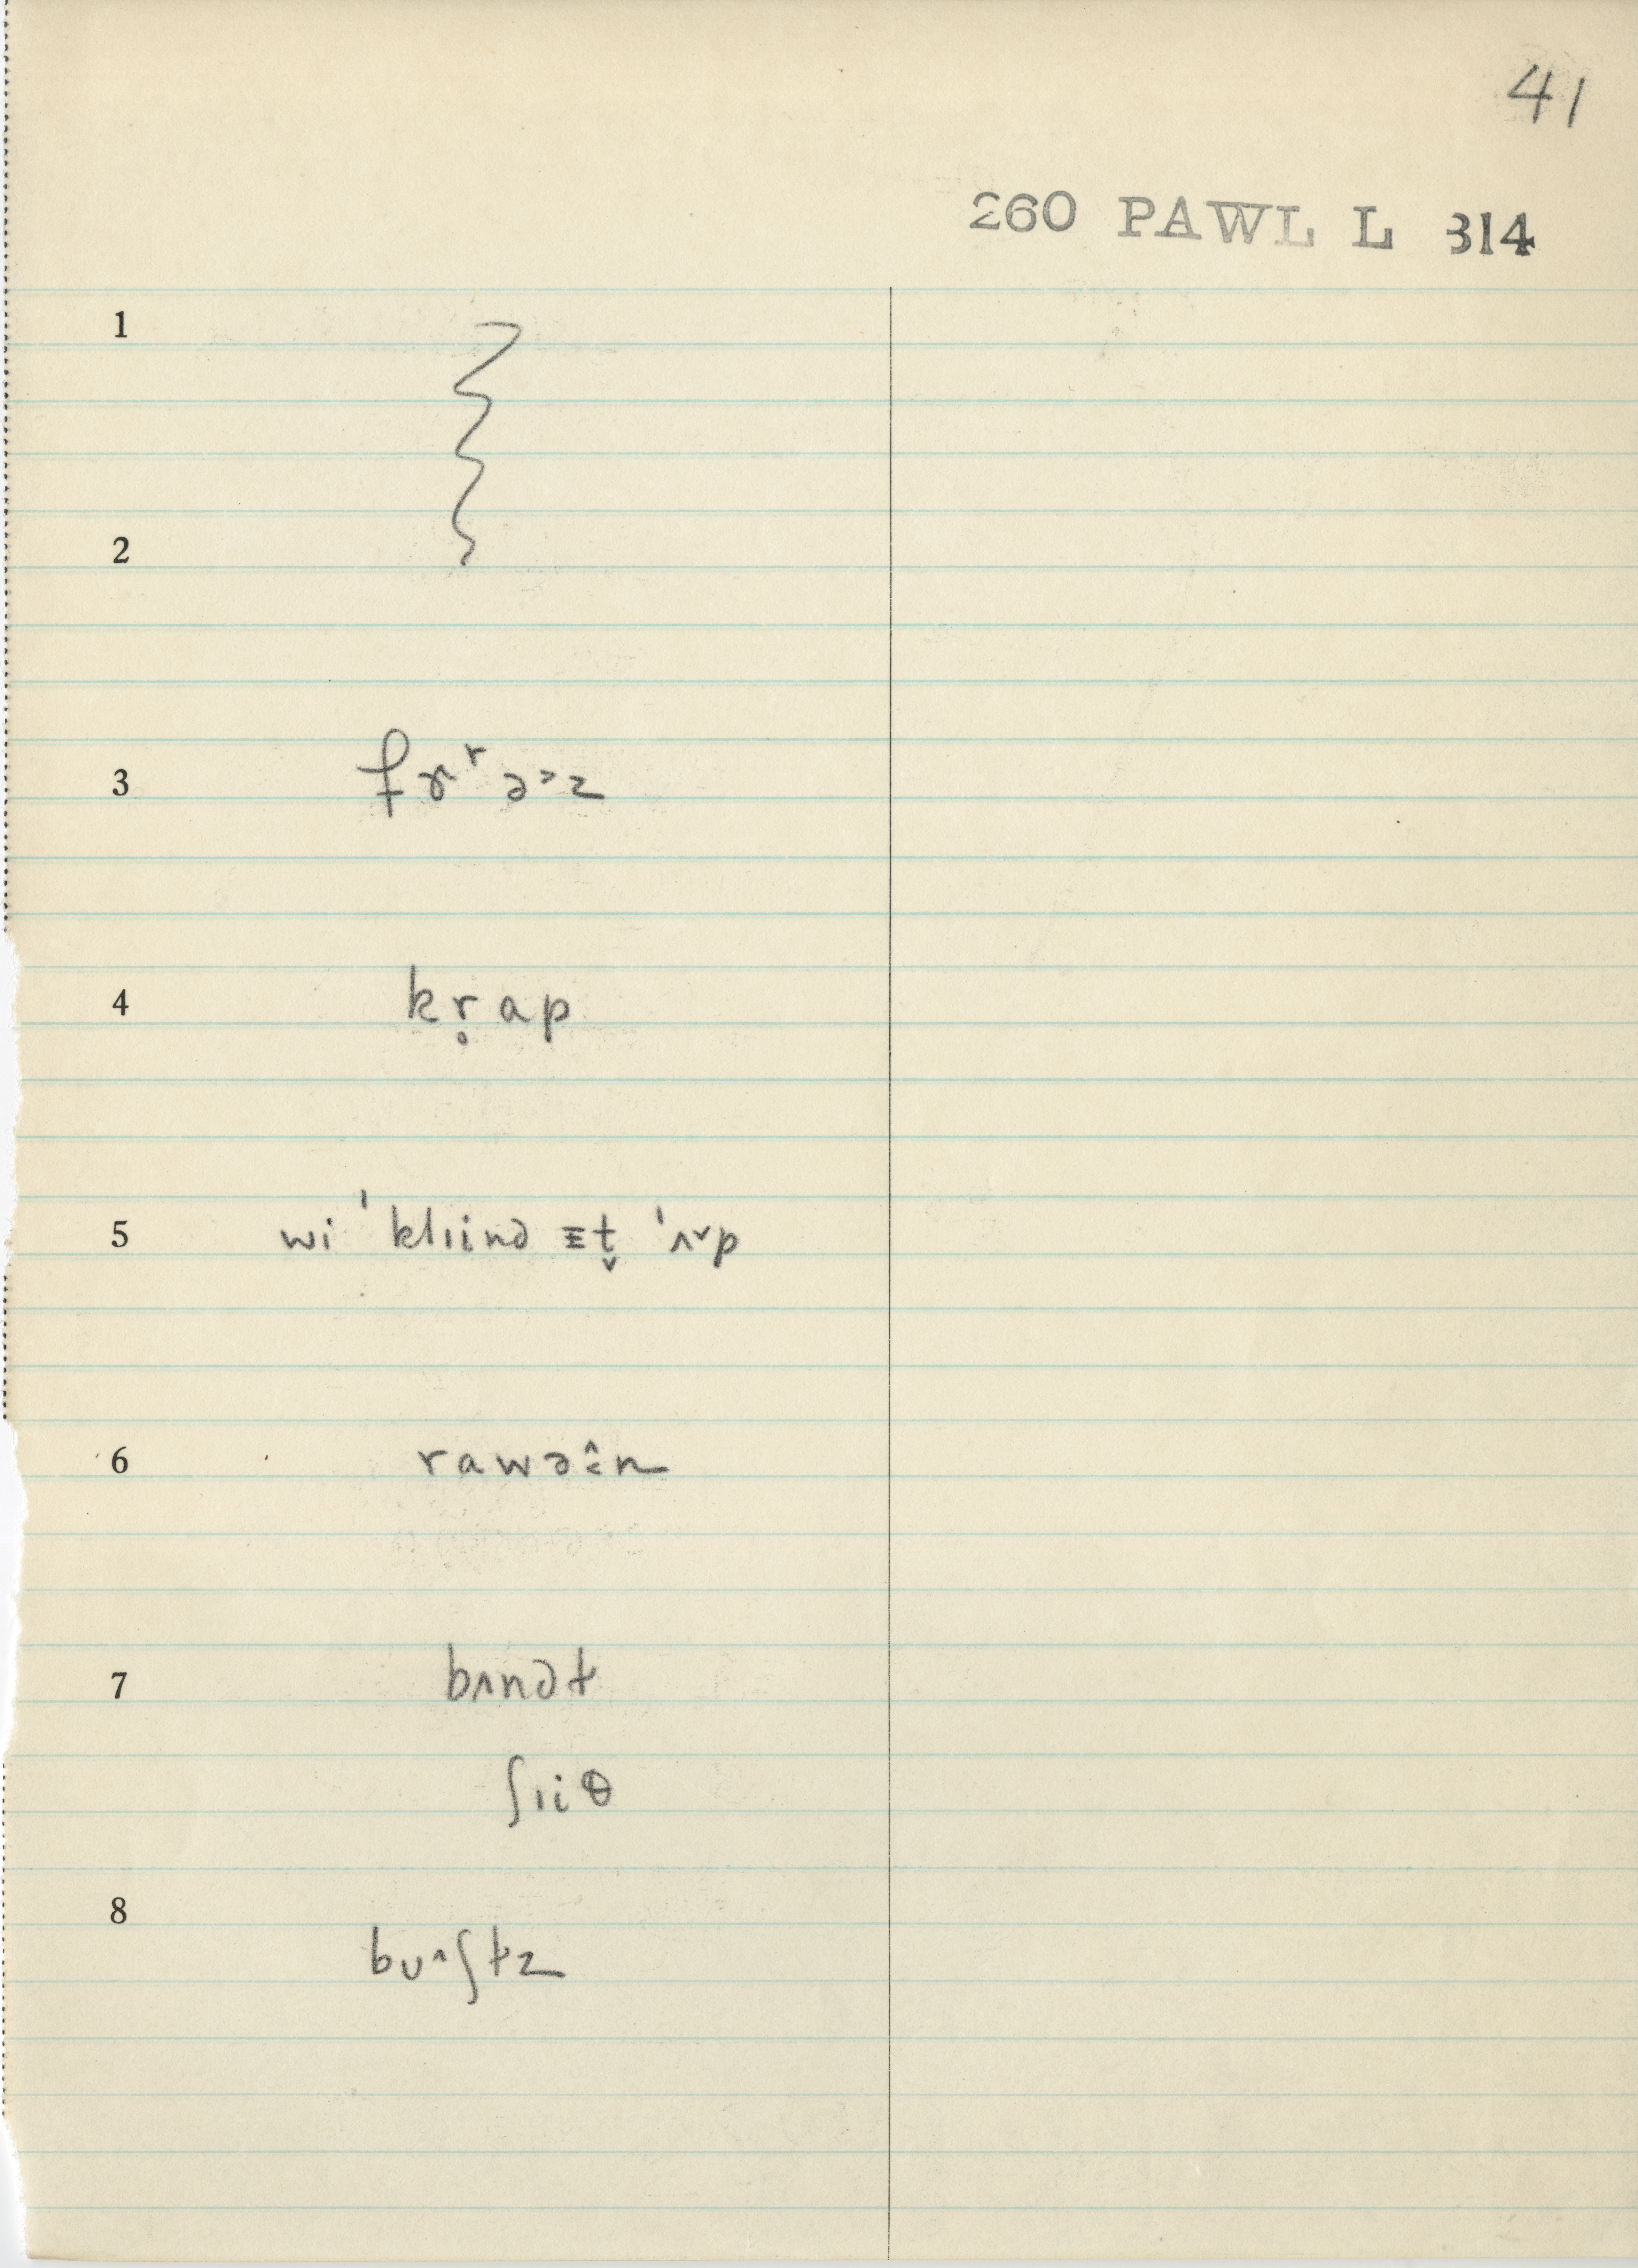 41
260 PAWL L 314
1
2
3 fɤʳə˃z
4 kr̥ap
5 wi ˈklɪinə ᴲt̬ ˈʌ˅p
6 rawəî̞n
7 bʌnət
ʃɪiθ
8 bʊ^ʃɫz